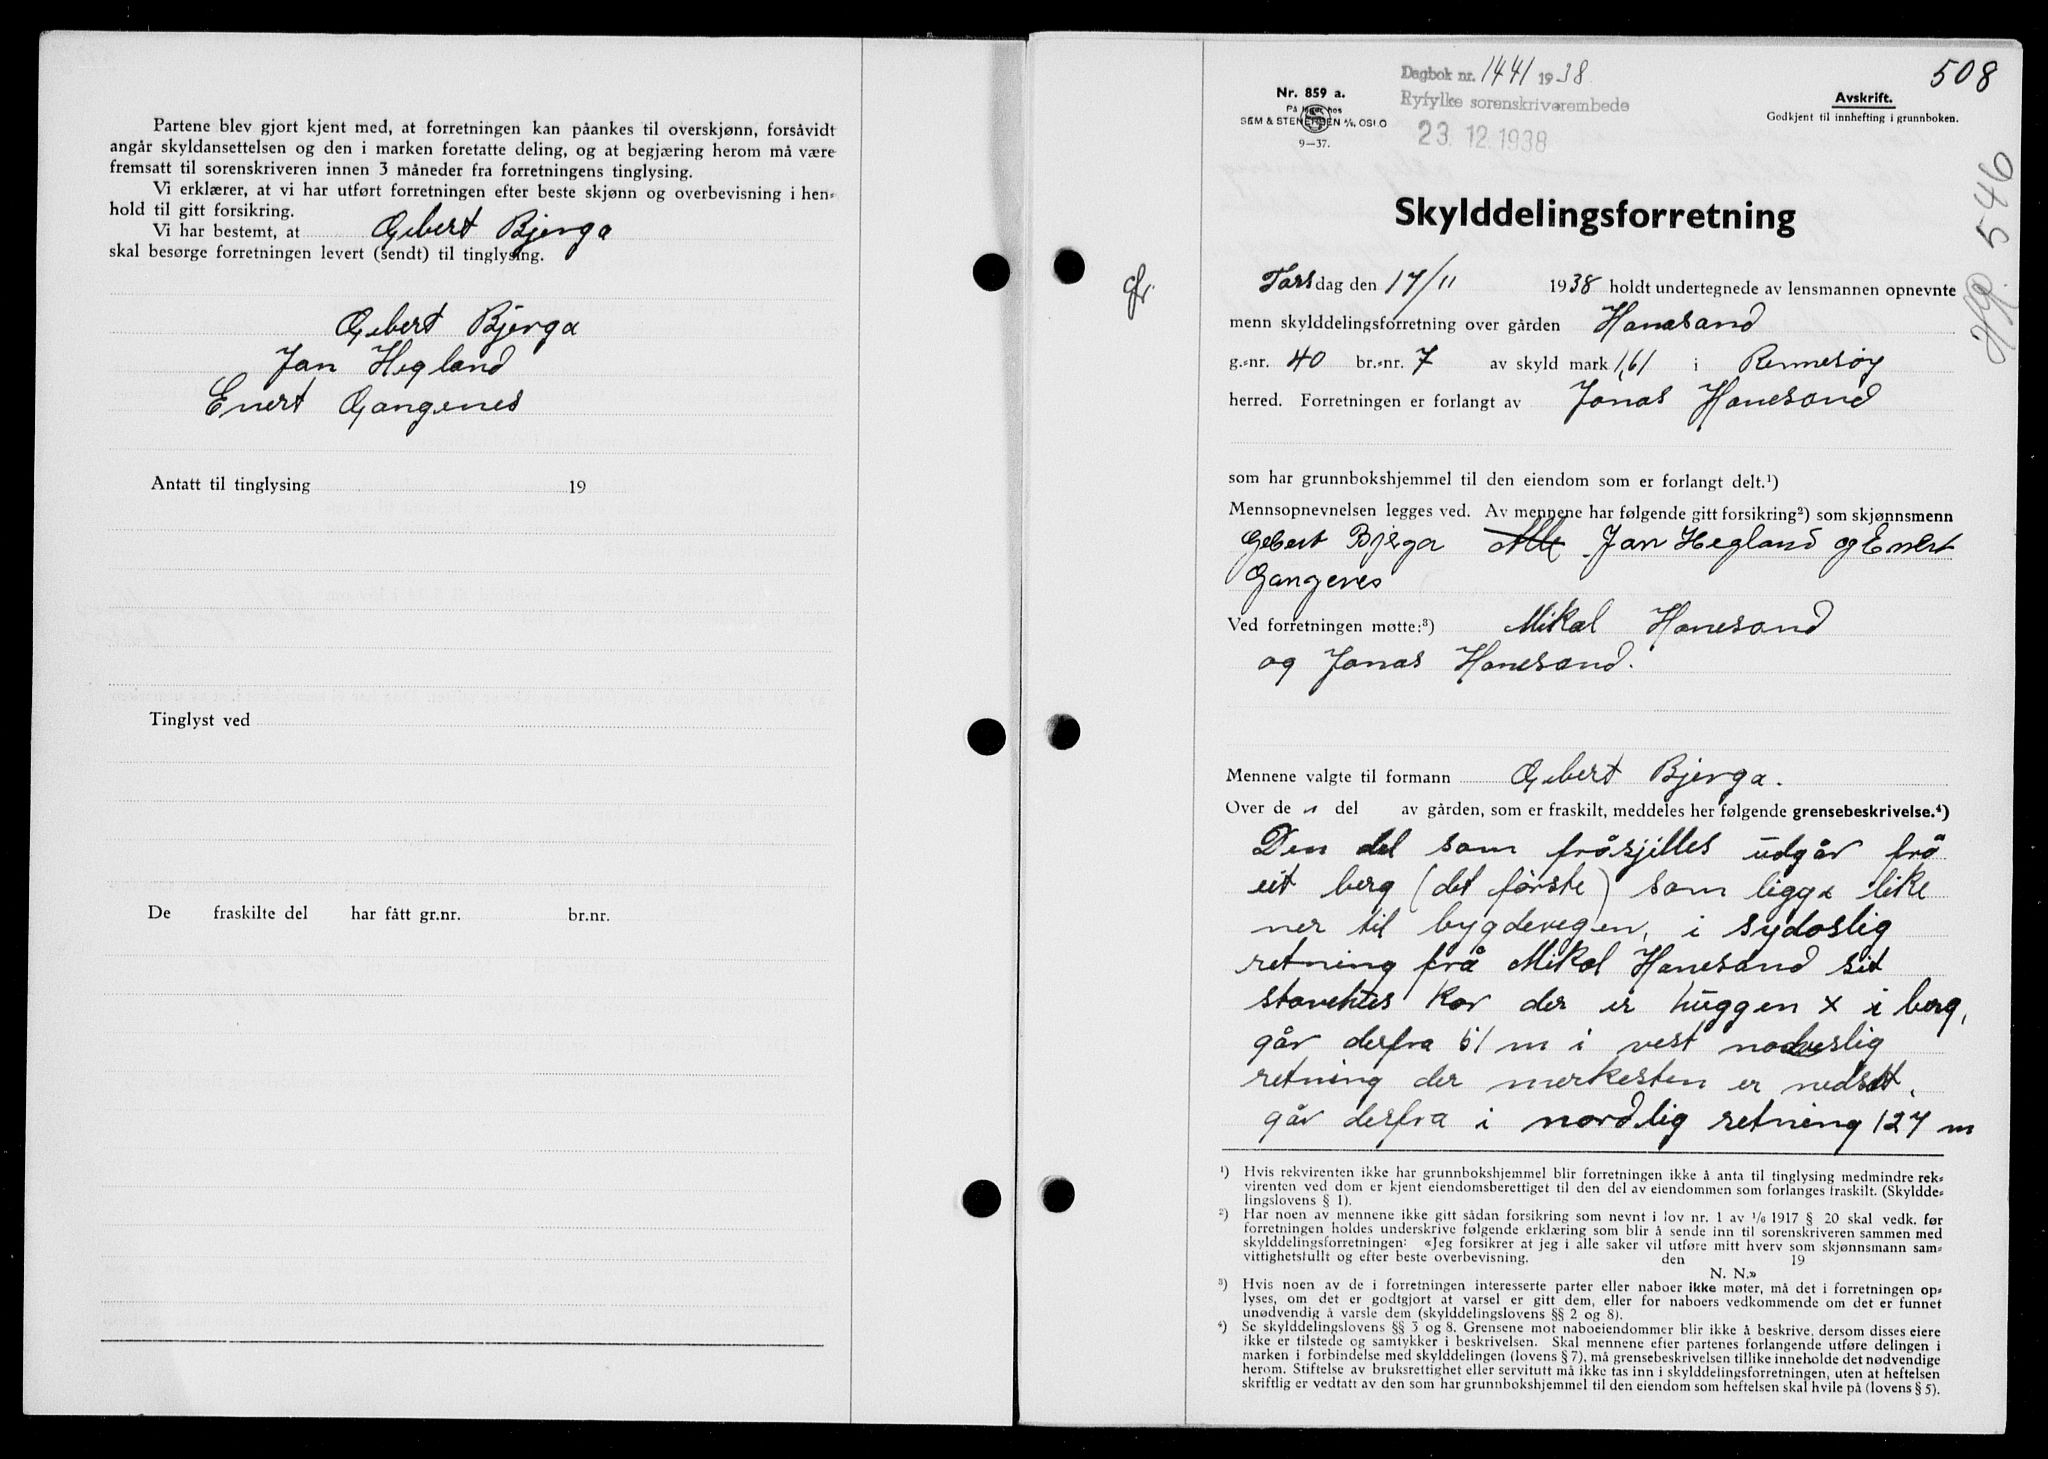 Partene blev gjort kjent med, at forretningen kan påankes til overskjønn, forsåvidt
angår skyldansettelsen og den i marken foretatte deling, og at begjæring herom må være
fremsatt til sorenskriveren innen 3 måneder fra forretningens tinglysing.
Vi erklærer, at vi har utført forretningen efter beste skjønn og overbevisning i hen=
hold til gitt forsikring.
Vi har bestemt, at Gebert Bjerga
skal besørge forretningen levert (sendt) til tinglysing.
Gebert Bjerga
Jan Hegland
Enert Gangenes
Antatt til tinglysing 19
Tinglyst ved
De fraskilte del har fått gr.nr. br.nr.
508
Dagbok nr. 1441 1938
Ryfylke sorenskriverembede
23.12.1938
Nr. 859 a.
På lager hos
SEM & STENERSEN A/S, OSLO
9—37.
Avskrift.
Godkjent til innhefting i grunnboken.
546
Skylddelingsforretning
Torsdag den 17/11 1938 holdt undertegnede av lensmannen opnevnte
menn skylddelingsforretning over gården Hanesand
g.=nr. 40 br.=nr. 7 av skyld mark 1,61 i Rennesøy
herred. Forretningen er forlangt av Jonas Hanesand
som har grunnbokshjemmel til den eiendom som er forlangt delt.¹)
Mennsopnevnelsen legges ved. Av mennene har følgende gitt forsikring²) som skjønnsmenn
Gebert Bjerga Alle Jan Hegland og Enert
Gangenes
Ved forretningen møtte:³) Mikal Hanesand
og Jonas Hanesand.
Mennene valgte til formann Gebert Bjerga.
Over de n del av gården, som er fraskilt, meddeles her følgende grensebeskrivelse.⁴)
Den del som fråsjilles udgår frå
eit berg (det første) som ligga like
ner til bygdevegen, i sydoslig
retning frå Mikal Hanesand sit
stovehus kor der er huggen x i berg,
går derfra 51 m i vest nordveslig
retning der merkesten er nedsatt.
går derfra i nordlig retning 127 m
¹) Hvis rekvirenten ikke har grunnbokshjemmel blir forretningen ikke å anta til tinglysing medmindre rek=
virenten ved dom er kjent eiendomsberettiget til den del av eiendommen som forlanges fraskilt. (Skyldde=
lingslovens § 1).
²) Har noen av mennene ikke gitt sådan forsikring som nevnt i lov nr. 1 av 1/6 1917 § 20 skal vedk. før
forretningen holdes underskrive følgende erklæring som blir å sende inn til sorenskriveren sammen med
skylddelingsforretningen: «Jeg forsikrer at jeg i alle saker vil utføre mitt hverv som skjønnsmann sam=
vittighetsfullt og efter beste overbevisning. den 19
N. N.»
³) Hvis noen av de i forretningen interesserte parter eller naboer ikke møter, må det i forretningen op=
lyses, om det er godtgjort at varsel er gitt dem, eller for naboers vedkommende om det er funnet
unødvendig å varsle dem (skylddelingslovens §§ 2 og 8).
⁴) Se skylddelingslovens §§ 3 og 8. Grensene mot naboeiendommer blir ikke å beskrive, dersom disses eiere
ikke er tilstede og samtykker i beskrivelsen. Skal mennene efter partenes forlangende utføre delingen i
marken i forbindelse med skylddelingen (lovens § 7), må grensebeskrivelsen tillike inneholde det nødvendige
herom. Stiftelse av bruksrettighet eller servitutt må ikke tas inn i skylddelingsforretningen, uten at heftelsen
skriftlig er vedtatt av den som har grunnbokshjemmel til den eiendom som heftelsen skal hvile på (lovens § 5).